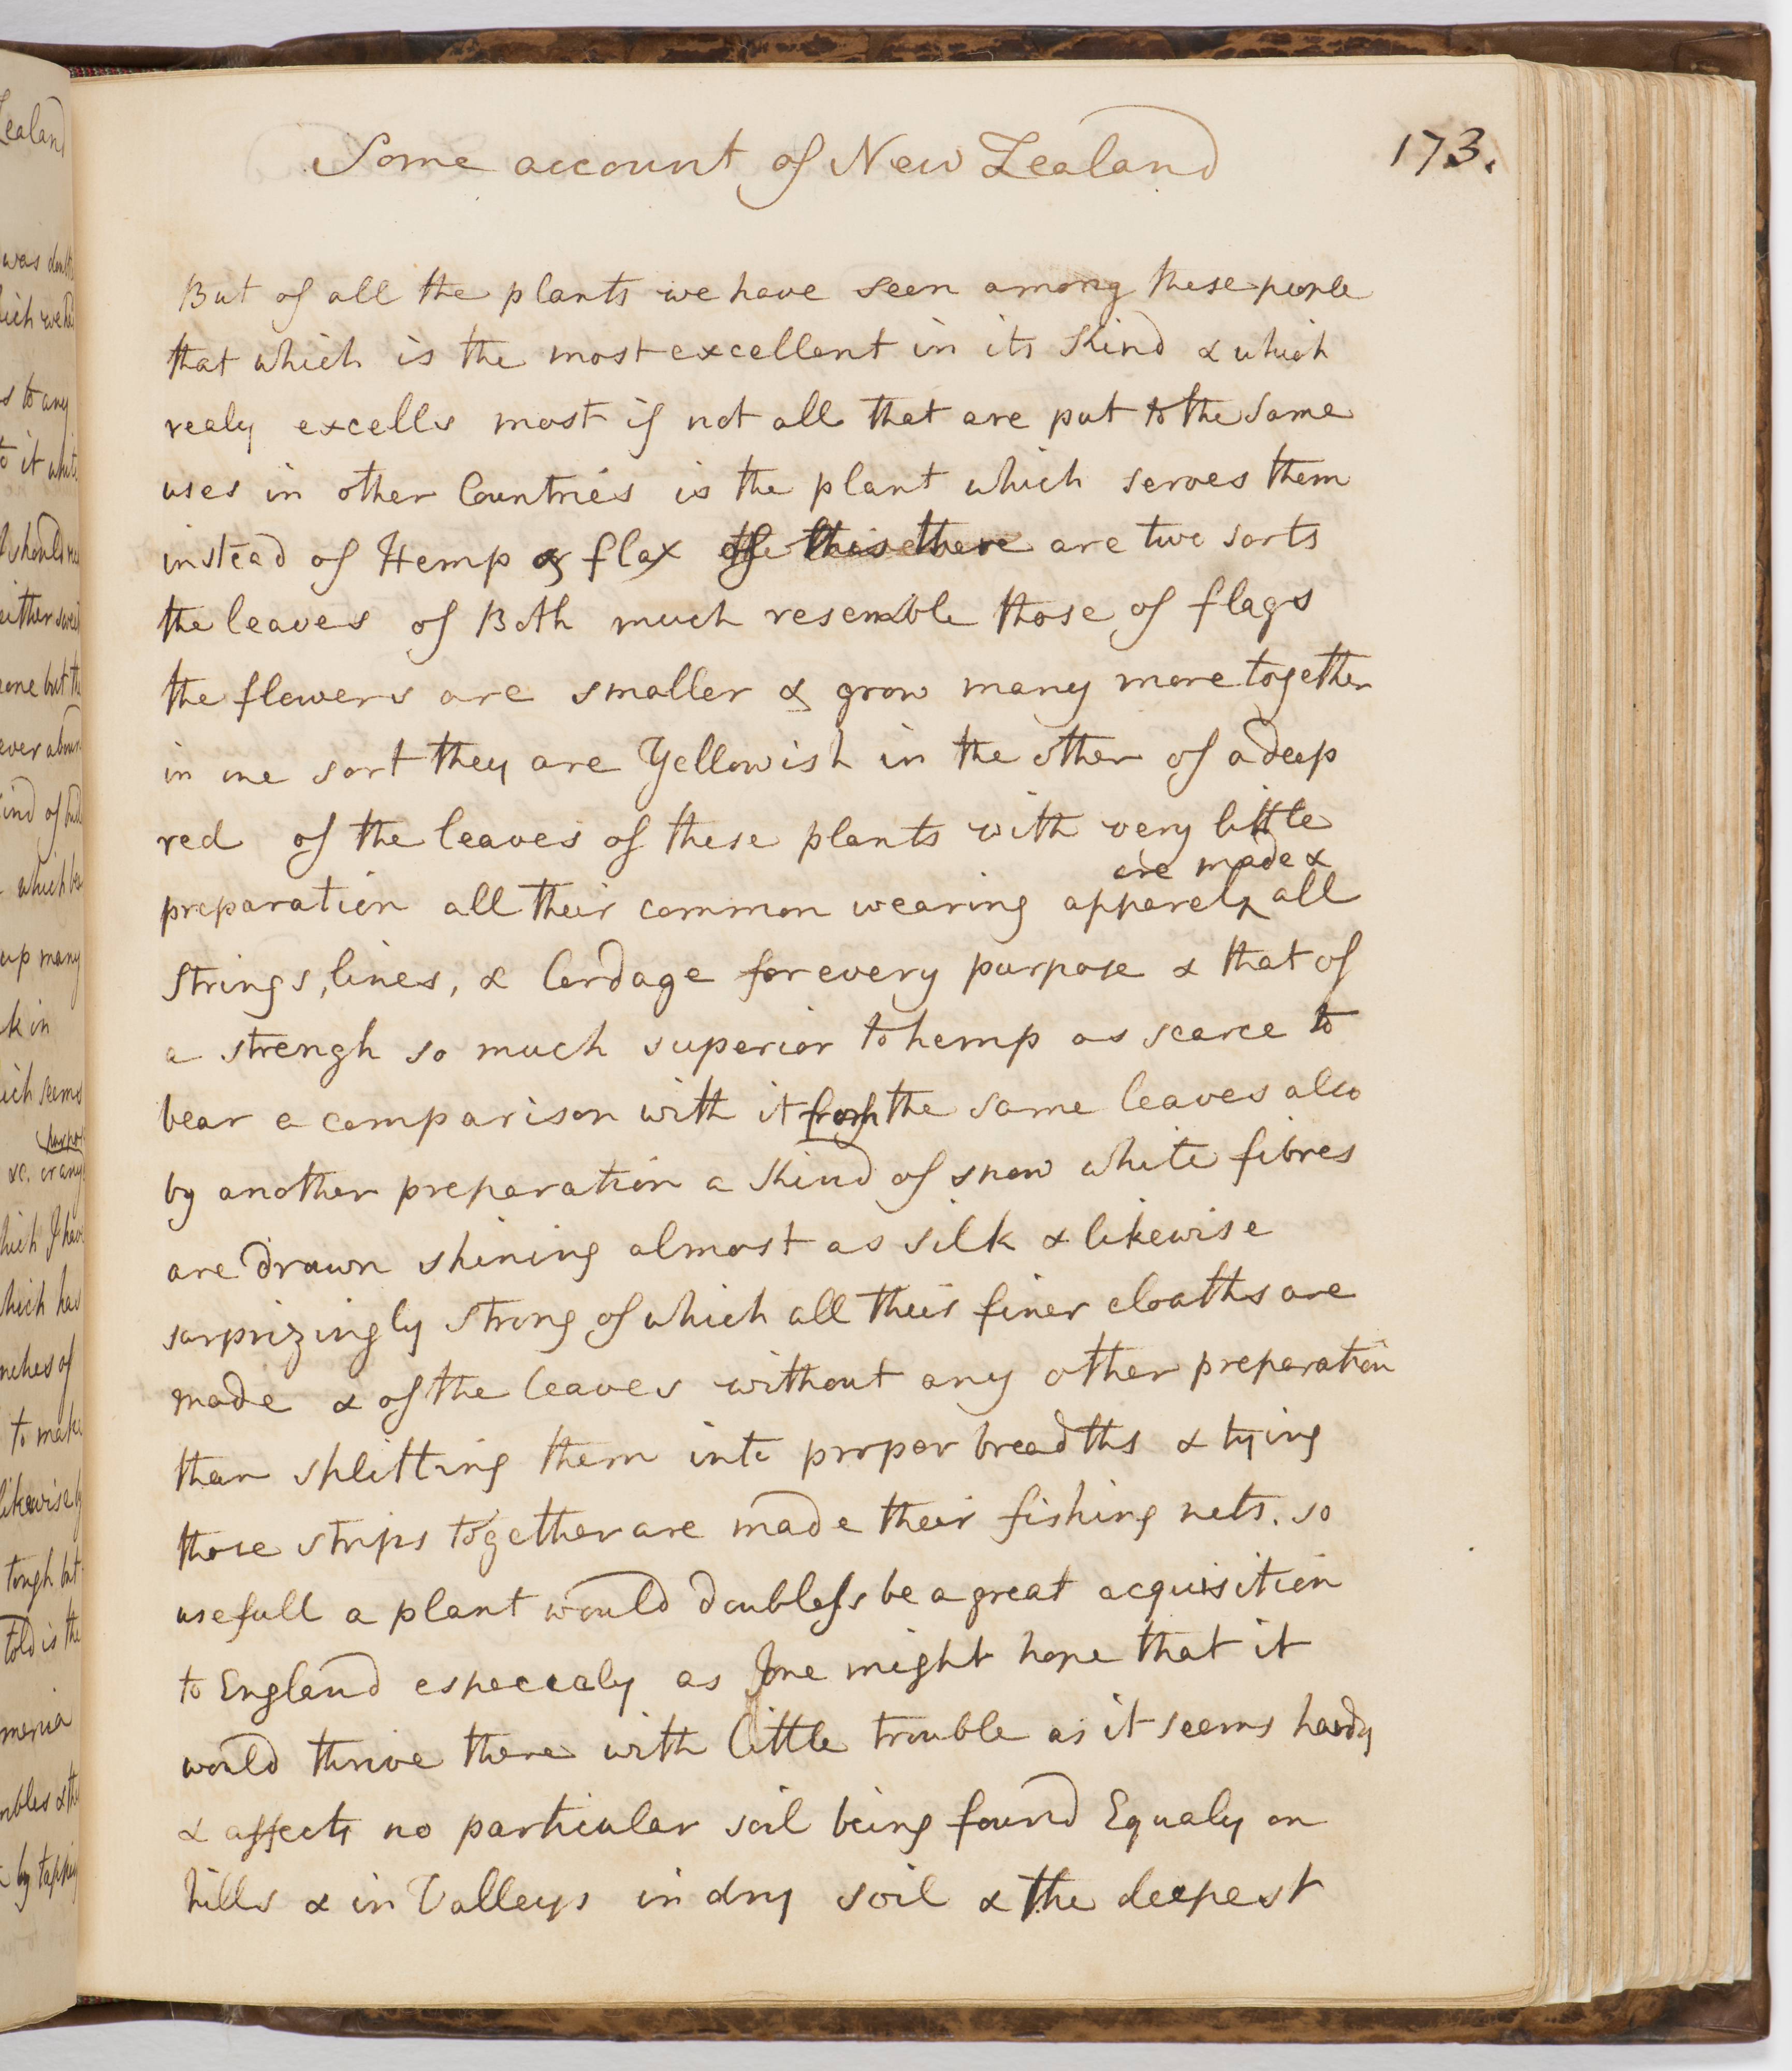 Some account of New Zealand
173.
But of all the plants we have seen among these people
that which is the most excellent in its kind & which
realy excells most if not all that are put to the same
uses in other Countries is the plant which serves them
instead of Hemp or flax of this there are two sorts
the leaves of Both much resemble those of flags
the flowers are smaller & grow many more together
in one sort they are Yellowish in the other of a deep
red of the leaves of these plants with very little
are made &
preparation all their common wearing apparel ^ all
strings, lines, & Cordage for every purpose & that of
a strengh so much superior to hemp as scarce to
bear a comparison with it from the same leaves also
by another preparation a kind of snow white fibres
are drawn shining almost as silk & likewise
surprizingly strong of which all their finer cloaths are
made & of the leaves without any other preparation
than splitting them into proper breadths & tying
those strips together are made their fishing nets. so
usefull a plant would doubless be a great acquisition
to England especialy as one might hope that it
would thrive there with little trouble as it seems hardy
& affects no particular soil being found Equaly on
hills & in Valleys in dry soil & the deepest